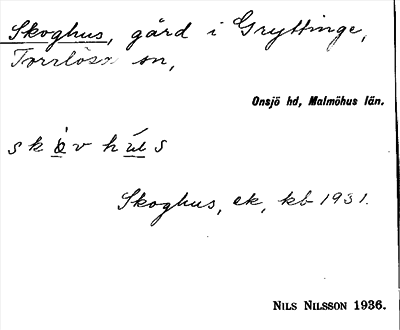 Skoghus, gård i Gryttinge,
Torrlösa sn,
Onsjö hd, Malmöhus län.
Skoghus, ek, kb 1931.
NILS NILSSON 1936.